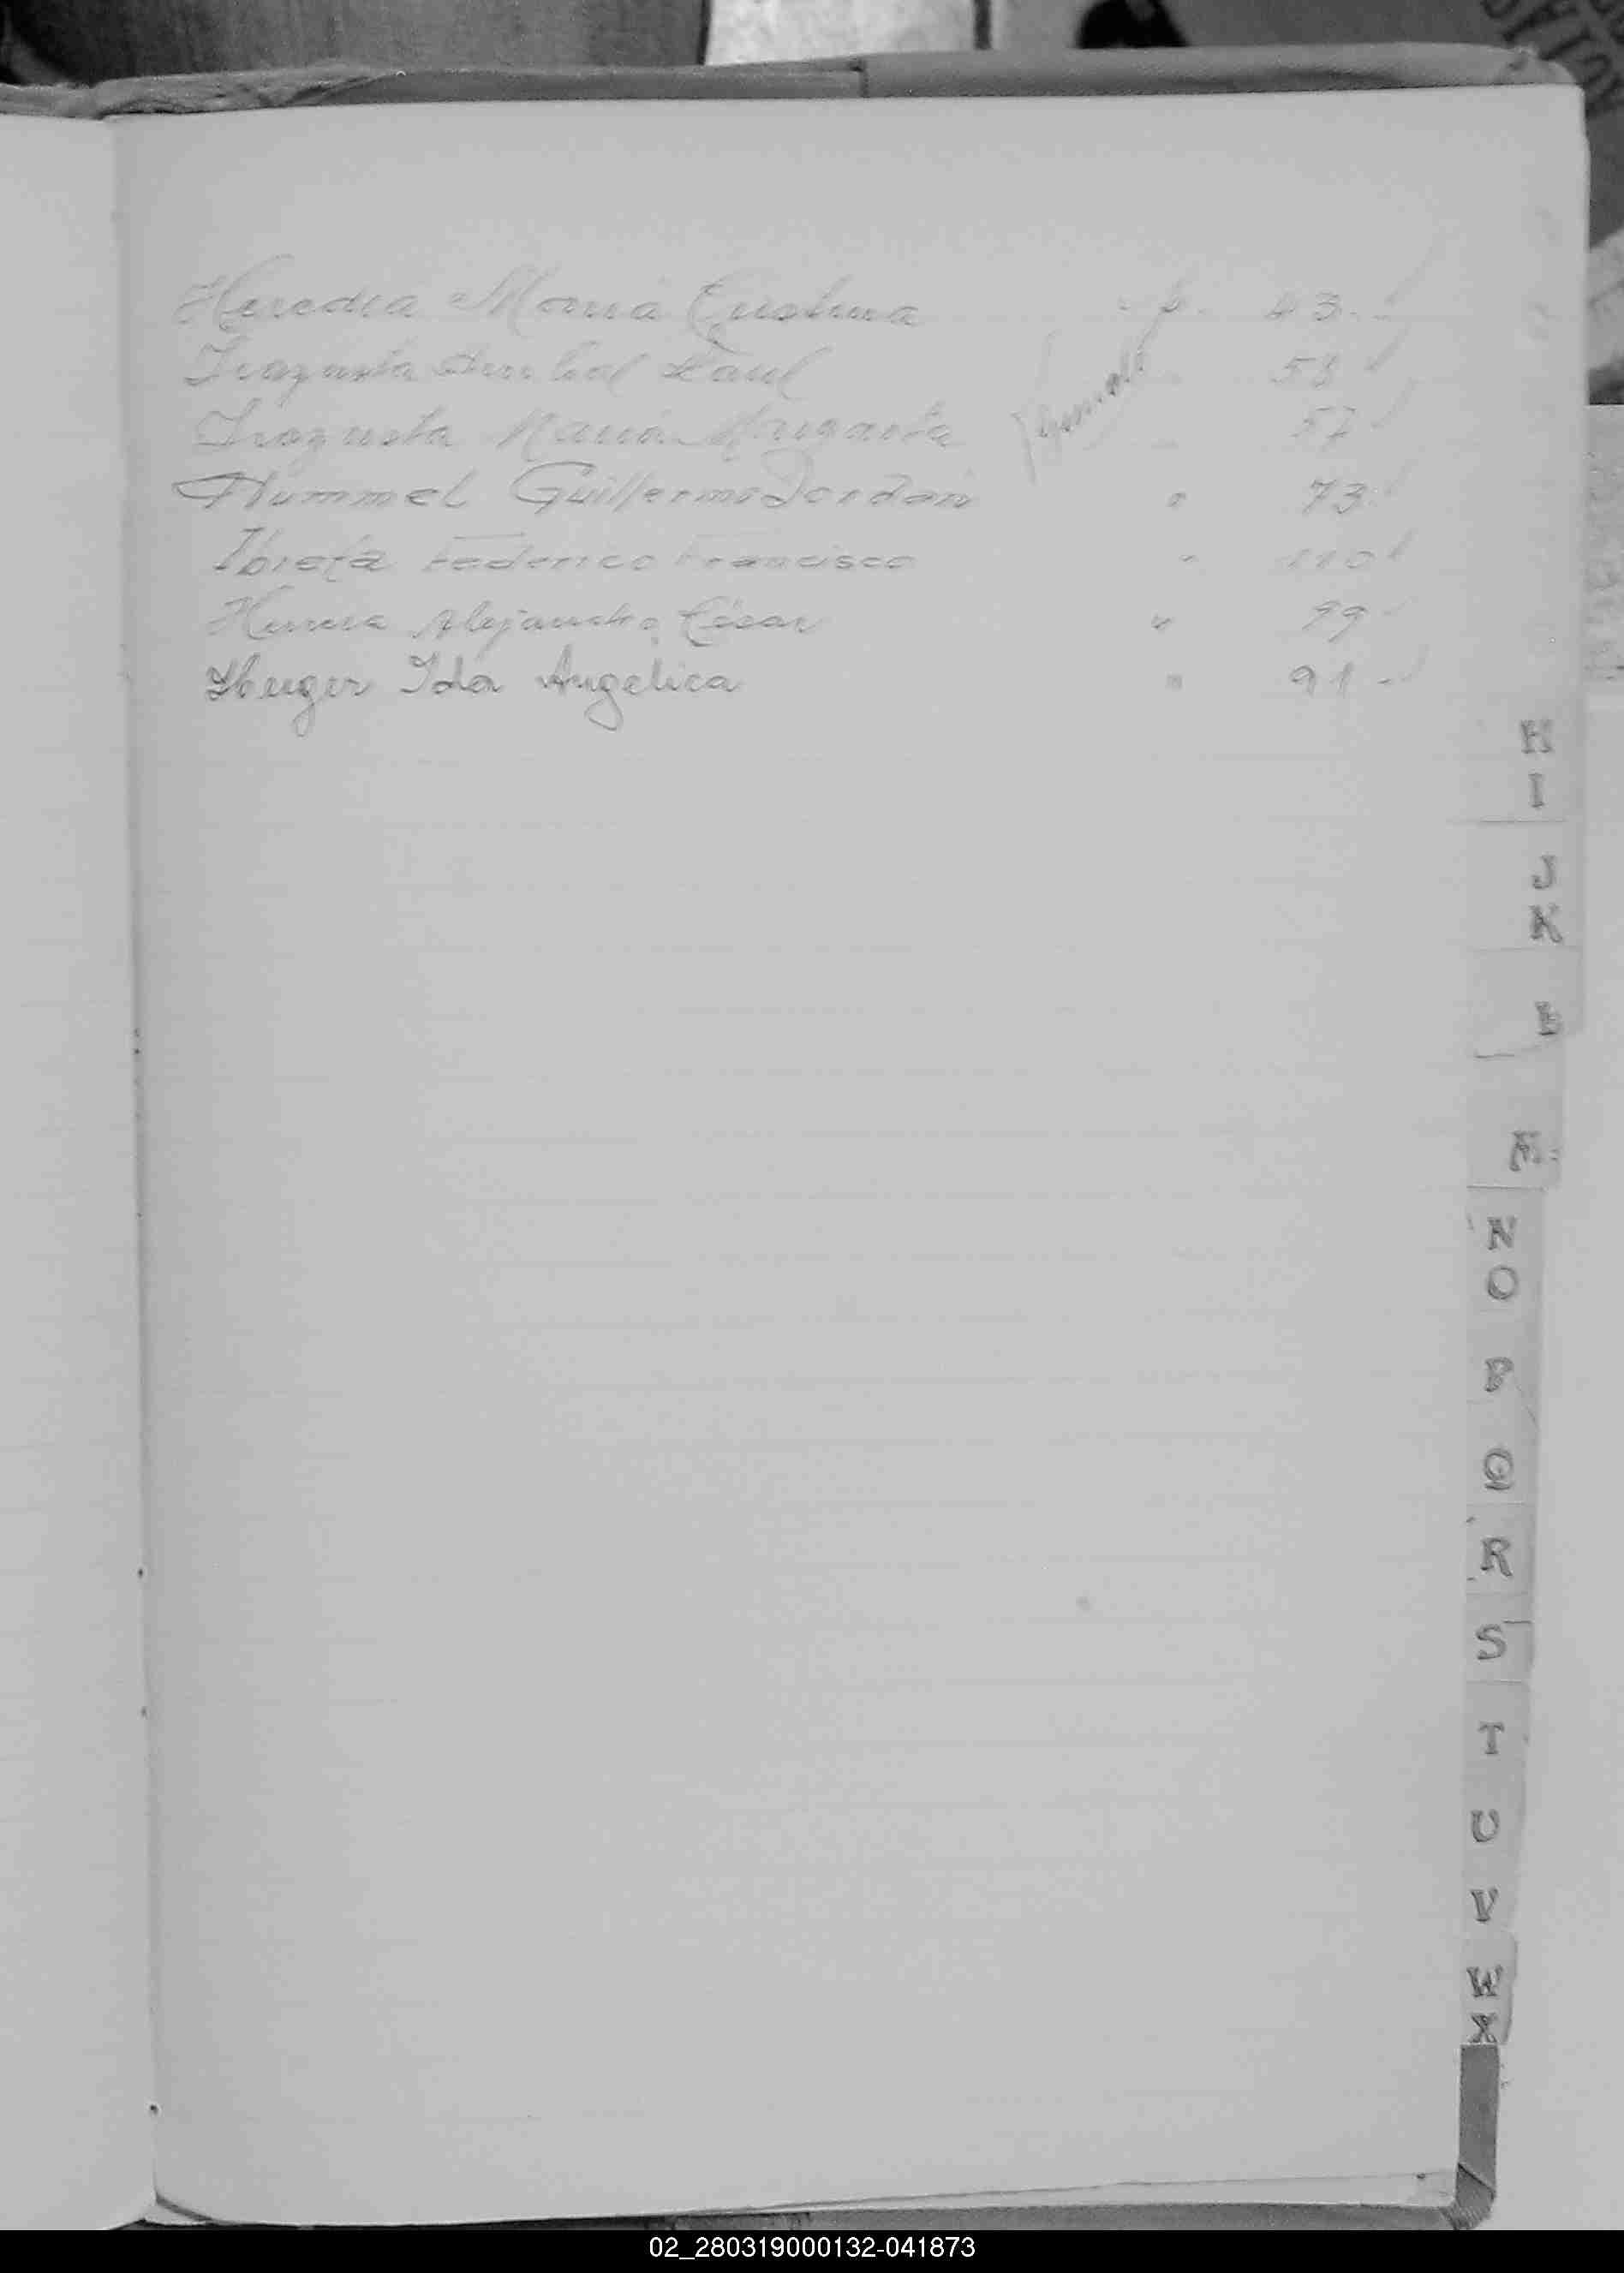 Heredia Maria Cristina " p. 43
Irazusta Anibal Raul 58
Irazusta Maria Margarita 57
Hummel Guillermo Jordan " 73
Federico Francisco " 110
Herrera Alejandro César " 99
Ida Angelica " 91
H
I
J
K
L
M
N
O
P
Q
R
S
T
U
V
W
X
02_280319000132-041873